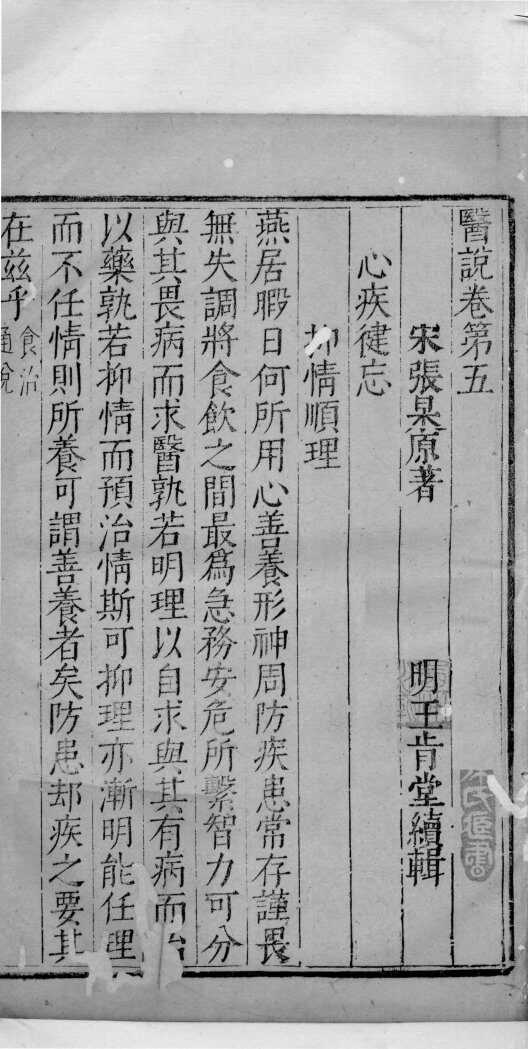 醫說卷第五
宋張杲原著 明王肯堂續輯
心疾徤忘
抑情順理
燕居暇日何所用心善養形神周防疾患常存謹畏
無失調將食飲之間最爲急務安危所繫智力可分
與其畏病而求醫孰若明理以自求與其有病而治
以藥孰若抑情而預治情斯可抑理亦漸明能任理
而不任情則所養可謂善養者矣防患却疾之要其
在兹乎食治通說